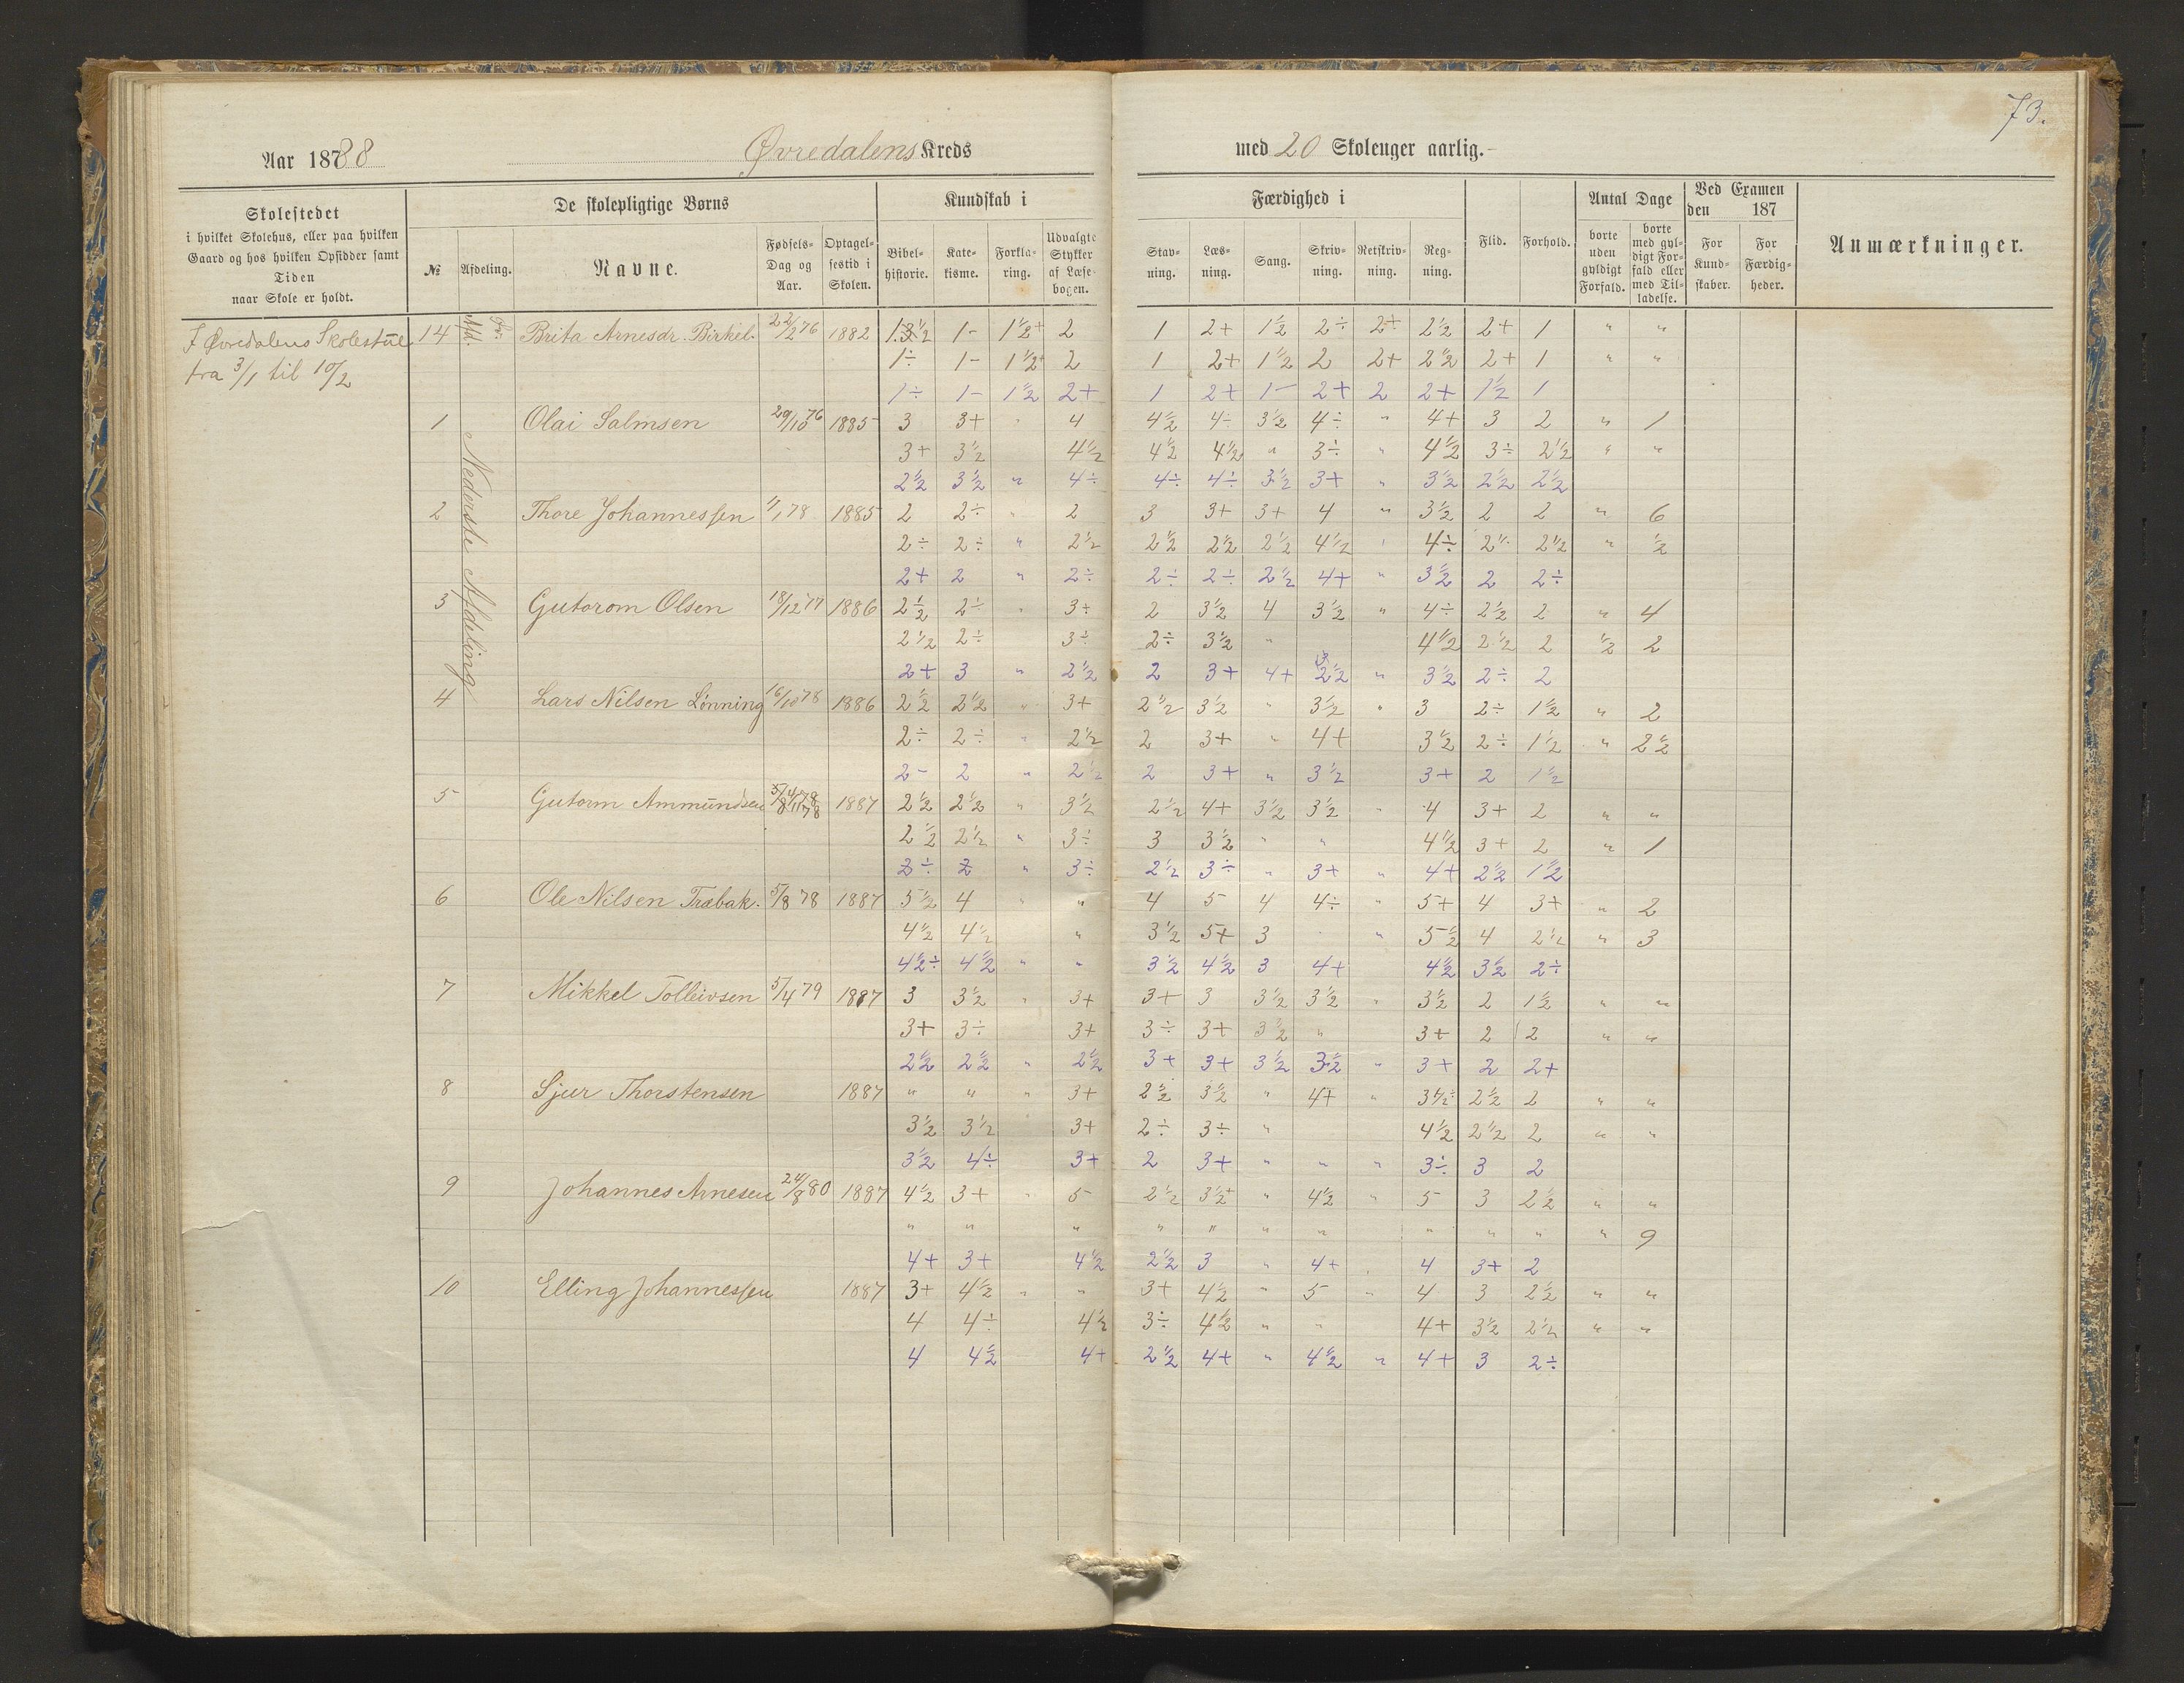 73.
Aar 1878 88 Øvredalens Kreds med 20 Skoleuger aarlig.
Skolestedet
i hvilket Skolehus, eller paa hvilken
Gaard og hos hvilken Opsidder samt
Tiden
naar Skole er holdt.
De skolepligtige Børns
№ Afdeling. Navne. Fødsels-Dag og Aar. Optagelsestid i Skolen.
Kundskab i
Bibelhistorie. Katekisme. Forklaring. Udvalgte Stykker af Læsebogen.
Færdighed i
Stavning. Læsning. Sang. Skrivning. Retskrivning. Regning.
Flid. Forhold.
Antal Dage
borte uden gyldigt Forfald. borte med gyldigt Forfald eller med Tilladelse.
Ved Examen
den 187
For Kundskaber. For Færdigheder.
Anmærkninger.
I Øvredalens Skolestue
fra 3/1 til 10/2
Nederste Afdeling
14 Brita Arnesdr. Birkel. 22/2 76 1882 1 1- 1½+ 2 1 2+ 1½ 2÷ 2+ 2½ 2+ 1 " "
1÷ 1- 1½+ 2 1 2+ 1½ 2 2+ 2½ 2+ 1 " "
1÷ 1- 1½ 2+ 1 2+ 1- 2+ 2 2+ 1½ 1
1 Olai Salmsen 29/10 76 1885 3 3+ " 4 4½ 4÷ 3½ 4÷ " 4+ 3 2 " 1
3+ 3½ 4½ 4½ 4½ " 3÷ " 4½ 3÷ 2½ " "
2½ 3½ " 4÷ 4÷ 4÷ 3½ 3+ " 3½ 2½ 2½
2 Thore Johannessen 1/1 78 1885 2 2÷ " 2 3 3+ 3+ 4 " 3½ 2 2 " 6
2÷ 2÷ " 2½ 2½ 2½ 2½ 4½ " 4÷ 2½ 2½ " ½
2+ 2 " 2÷ 2÷ 2÷ 2½ 4+ " 3½ 2 2÷
3 Gutorom Olsen 18/12 77 1886 2½ 2÷ " 3÷ 2 3½ 4 3½ " 4÷ 2½ 2 " 4
2½ 2÷ 3÷ 2÷ 3½ " 4½ 2½ 2 ½ 2
2+ 3 " 2½ 2 3+ 4+ 2½ " 3½ 2÷ 2
4 Lars Nilsen Lønning 16/10 78 1886 2½ 2½ " 3+ 2½ 3½ " 3½ " 3 2÷ 1½ " 2
2÷ 2÷ " 2½ 2 3+ " 4+ 3½ 2÷ 1½ " 2½
2- 2 " 2½ 2 3+ " 3½ 3+ 2 1½
5 Gutorm Ammundsen 1887 2½ 2½ " 3½ 2½ 4+ 3½ 3½ " 4 3+ 2 " "
2½ 2½ " 3÷ 3 3½ " " 4½ 3+ 2 " 1
2÷ 2 " 3÷ 2½ 3÷ " 3+ " 4+ 2½ 1½
6 Ole Nilsen Træbak. 5/8 78 1887 5½ 4 " " 4 5 4 4÷ " 5+ 4 3+ " 2
4½ 4½ " 3½ 5+ 3 " " 5½ 4 2½ " 3
4½÷ 4½ " " 3½ 4½ 3 4+ 4½ 3½ 2÷
7 Mikkel Tolleivsen 5/4 79 1887 3 3½ " 3+ 3+ 3 3½ 3½ " 3½ 2 1½ " "
3+ 3÷ 3+ 3÷ 3+ 3½ " 3+ 2 2 " "
2½ 2½ " 2½ 3+ 3+ 3½ 3½ " 3+ 2 2+
8 Sjur Thorstensen 1887 " " " 3+ 2½ 3½ " 4+ " 3½÷ 2½ 2 " "
3½ 3½ 3+ 2÷ 3÷ " 4½ 2½ 2 " "
3½ 4÷ 3+ 2 3+ " " " 3÷ 3 2
9 Johannes Arnesen 24/8 80 1887 4½ 3+ " 5 2½ 3½+ " 4½ " 5 3 2½ " "
" " " " " " " " " " " 9
4+ 3+ 4½ 2½ 3 " 4+ 4 3+ 2
10 Elling Johannessen 1887 3+ 4½ " " 3+ 4½ " 5 " 4 3 2½ " "
4 4÷ 4½ 3÷ 4½ " " 4+ 3½ 2½ " "
4 4½ 4+ 2½ 4+ " 4½ " 4+ 3 2÷